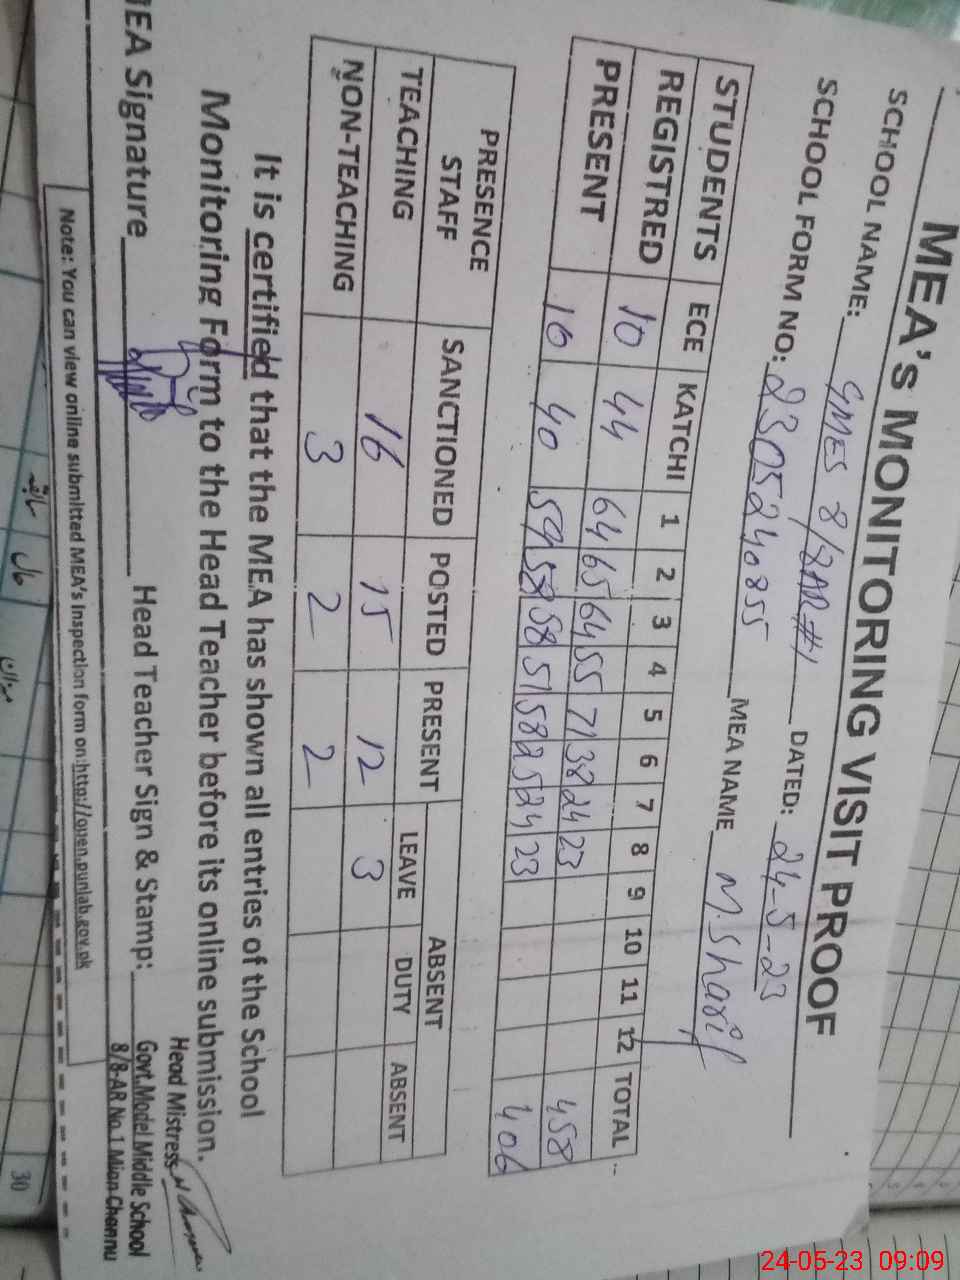 MEA'S MONITORING VISIT PROOF
SCHOOL NAME: GMES 8/8AR#1 DATED: 24-5-23
SCHOOL FORM NO: 2305240855 MEA NAME M. Sharif
STUDENTS ECE KATCHI 1 2 3 4 5 6 7 8 9 10 11 12 TOTAL
REGISTRED 10 44 64 65 64 55 71 38 24 23 458
PRESENT 10 40 59 58 58 51 58 25 24 23 406
PRESENCE STAFF SANCTIONED POSTED PRESENT ABSENT
LEAVE DUTY ABSENT
TEACHING 16 15 12 3
NON-TEACHING 3 2 2
It is certified that the MEA has shown all entries of the School
Monitoring Form to the Head Teacher before its online submission.
MEA Signature Head Teacher Sign & Stamp:
Head Mistress
Govt.Model Middle School
8/8-AR No.1 Mian Channu
Note: You can view online submitted MEA's Inspection form on:http://open.punjab.gov.pk
سابقہ
حال
میزان
30
24-05-23 09:09